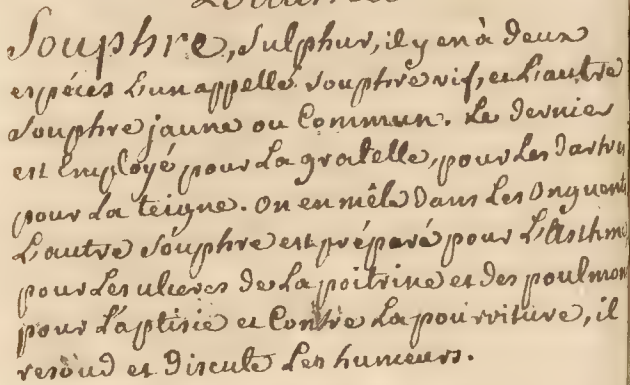 Souphre, Sulphur, il y en à deux
espéces L'un appellé souphre vif, et L'autre
souphre jaune ou Commun. Le dernier
est Employé pour La gratelle, pour Les dartres
pour La teigne. on en mêle dans Les onguents
L'autre Souphre est préparé pour L'Asthme
pour Les ulceres de La poitrine et des poulmons
pour L'aptisie et Contre La pourriture, il
resoud et discute Les humeurs.